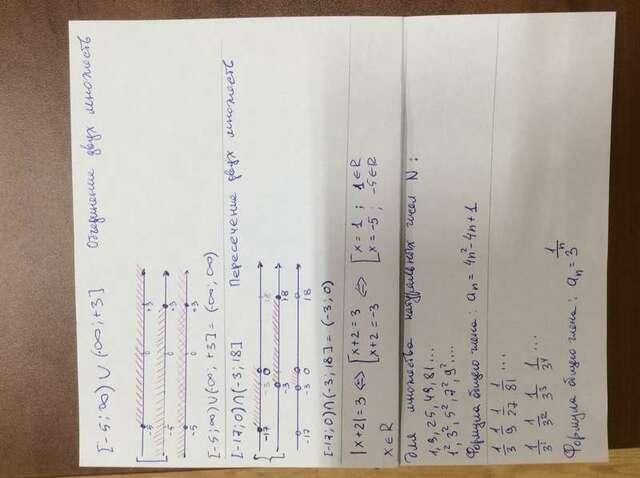 [-5;∞) ∪ (-∞;+3] Объединение двух множеств
-5 0 +3
-5 0 +3
-5 0 +3
[-5;∞)∪(-∞; +3] = (-∞; ∞)
[-17;0)∩(-3;18] Пересечение двух множеств
-17 -3 0 18
-3 18
-17 -3 0 18
[-17;0)∩(-3;18] = (-3;0)
|x+2|=3 ⇔ [x+2=3 ⇔ [x=1 ; 1∈R
x+2=-3 x=-5 ; -5∈R
x∈R
Для множества натуральных чисел N :
1, 9, 25, 49, 81 ...
1², 3², 5², 7², 9² ....
Формула общего члена: aₙ = 4n²-4n+1
1/3 1/9 1/27 1/81 ...
1/3¹ 1/3² 1/3³ 1/3⁴ ...
Формула общего члена: aₙ = 1/3ⁿ